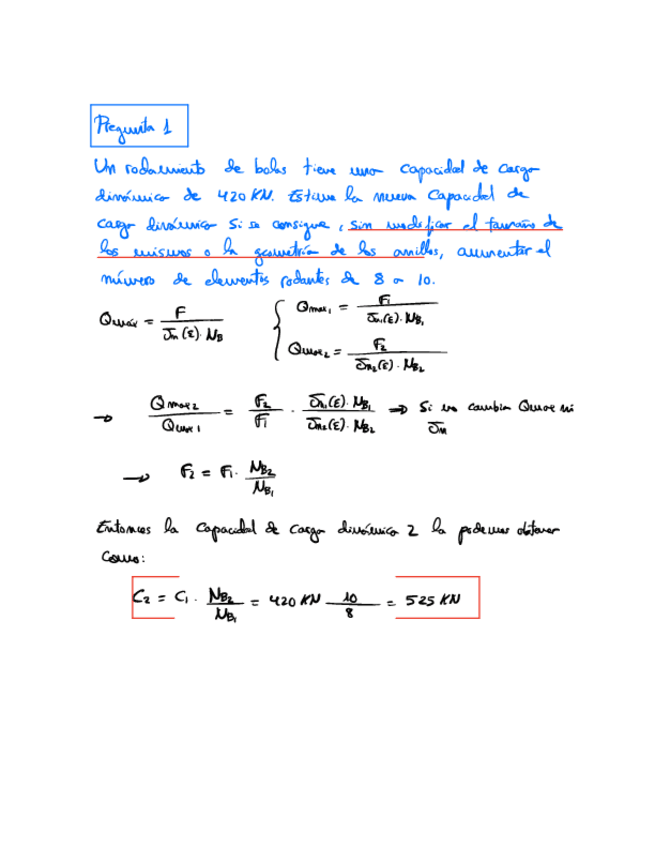 Pregunta 1
Un rodamiento de bolas tiene una capacidad de carga
dinámica de 420 KN. Estima la nueva capacidad de
carga dinámica si se consigue, sin modificar el tamaño de
los mismos o la geometría de los anillos, aumentar el
número de elementos rodantes de 8 a 10.
Qmáx = F / (Jn(ε) · NB) { Qmax1 = F1 / (Jn1(ε) · NB1)
Qmax2 = F2 / (Jn2(ε) · NB2)
→ Qmax2 / Qmax1 = F2 / F1 · (Jn1(ε) · NB1) / (Jn2(ε) · NB2) ⇒ Si no cambia Qmax ni
Jn
→ F2 = F1 · NB2 / NB1
Entonces la capacidad de carga dinámica 2 la podemos obtener
como:
C2 = C1 · NB2 / NB1 = 420 KN 10 / 8 = 525 KN